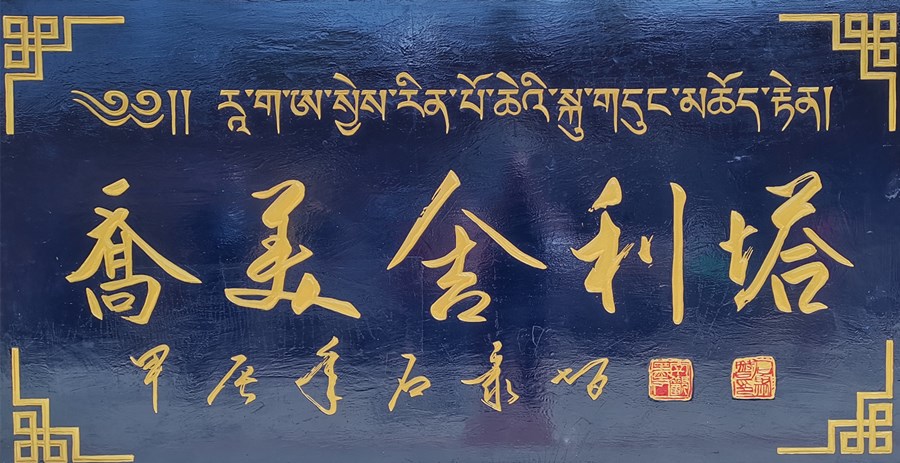 ༄༅།། རཱ་ག་ཨ་སྱེས་རིན་པོ་ཆེའི་སྐུ་གདུང་མཆོད་རྟེན།
喬美舍利塔
甲辰年石